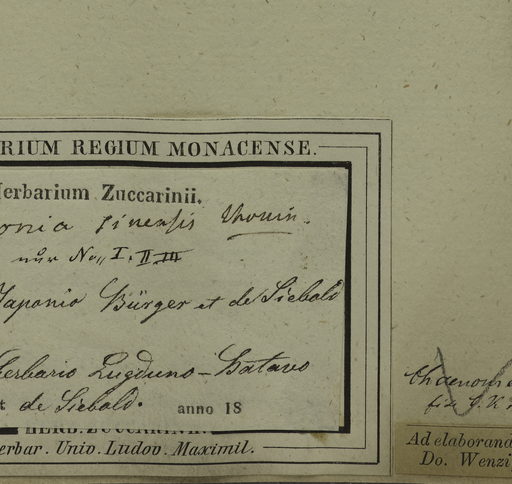 RIUM REGIUM MONACENSE.
Herbarium Zuccarinii.
onia sinensis Thouin.
nur No,, I. II III
Japonia Bürger et de Siebold
Herbario Lugduno-Batavo
t de Siebold. anno 18
HERB. ZUCCARINII.
erbar. Univ. Ludov. Maximil.
Ad elaborand
Do. Wenzi